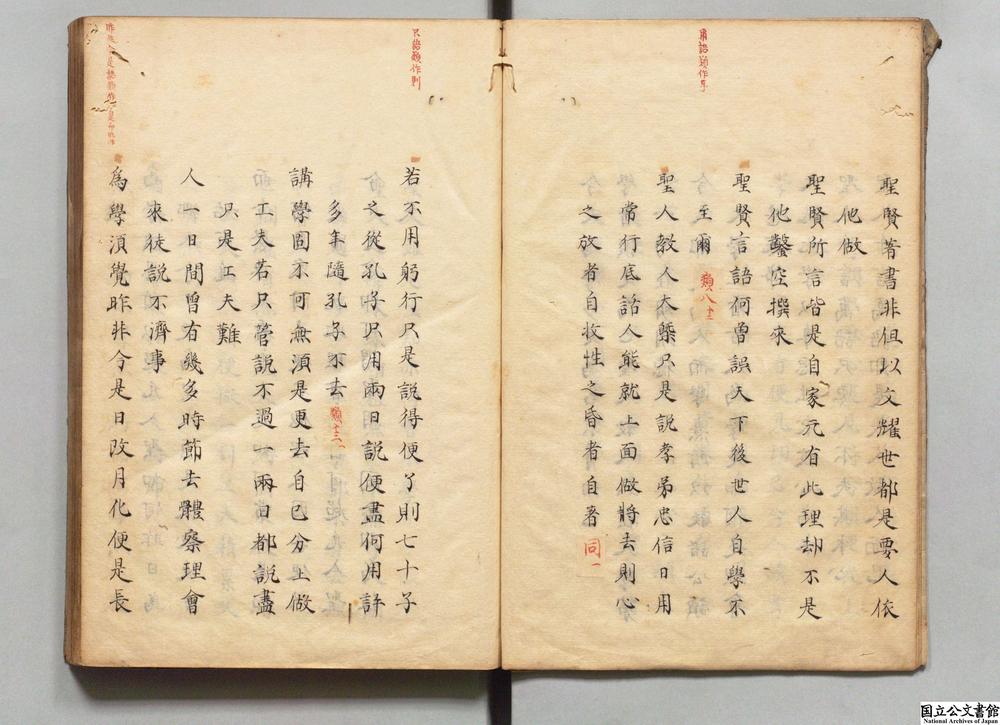 聖賢著書非但以文耀世都是要人依
他做
聖賢所言皆是自家元有此理却不是
他鑿空撰來
聖賢言語何曾誤天下後世人自學不
至爾 類八十三
聖人教人大槩只是說孝弟忠信日用
常行底話人能就上面做將去則心
之放者自收性之昏者自著 同一
若不用躬行只是說得便了則七十子
之從孔子只用兩日說便盡何用許
多年隨孔子不去
講學固不可無須是更去自己分上做
工夫若只管說不過一兩日都說盡
只是工夫難
人一日間曾有幾多時節去體察理會
來徒說不濟事
為學須覺昨非今是日改月化便是長
只語類作則
国立公文書館
National Archives of Japan